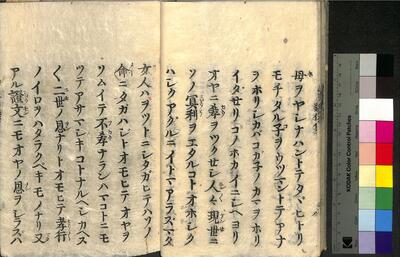 母ヲヤシナハントテタヾヒトリ
モチタル子ヲウヅマントテアナ
ヲホリシカバコガ子ノカマヲホリ
イダセリコノホカイニシヘヨリ
オヤニ孝ヲツクセシ人ハ現世ニ
ソノ冥利ヲエタルコトオホシ
アグルニイトマアラズマタ
女人ハヲツトニシタガヒテハソノ
命ニタガハジトオモヒテオヤヲ
ツムイテ不孝ナランハマコトニモ
ツテアサマシキコトナルベシカヘス
〱二世ノ恩ナリトオモヒテ孝行
ノイロヲハタラクベキモノナリ又
アル證文ニモオヤノ恩ヲシラズハ
KODAK Color Control Patches